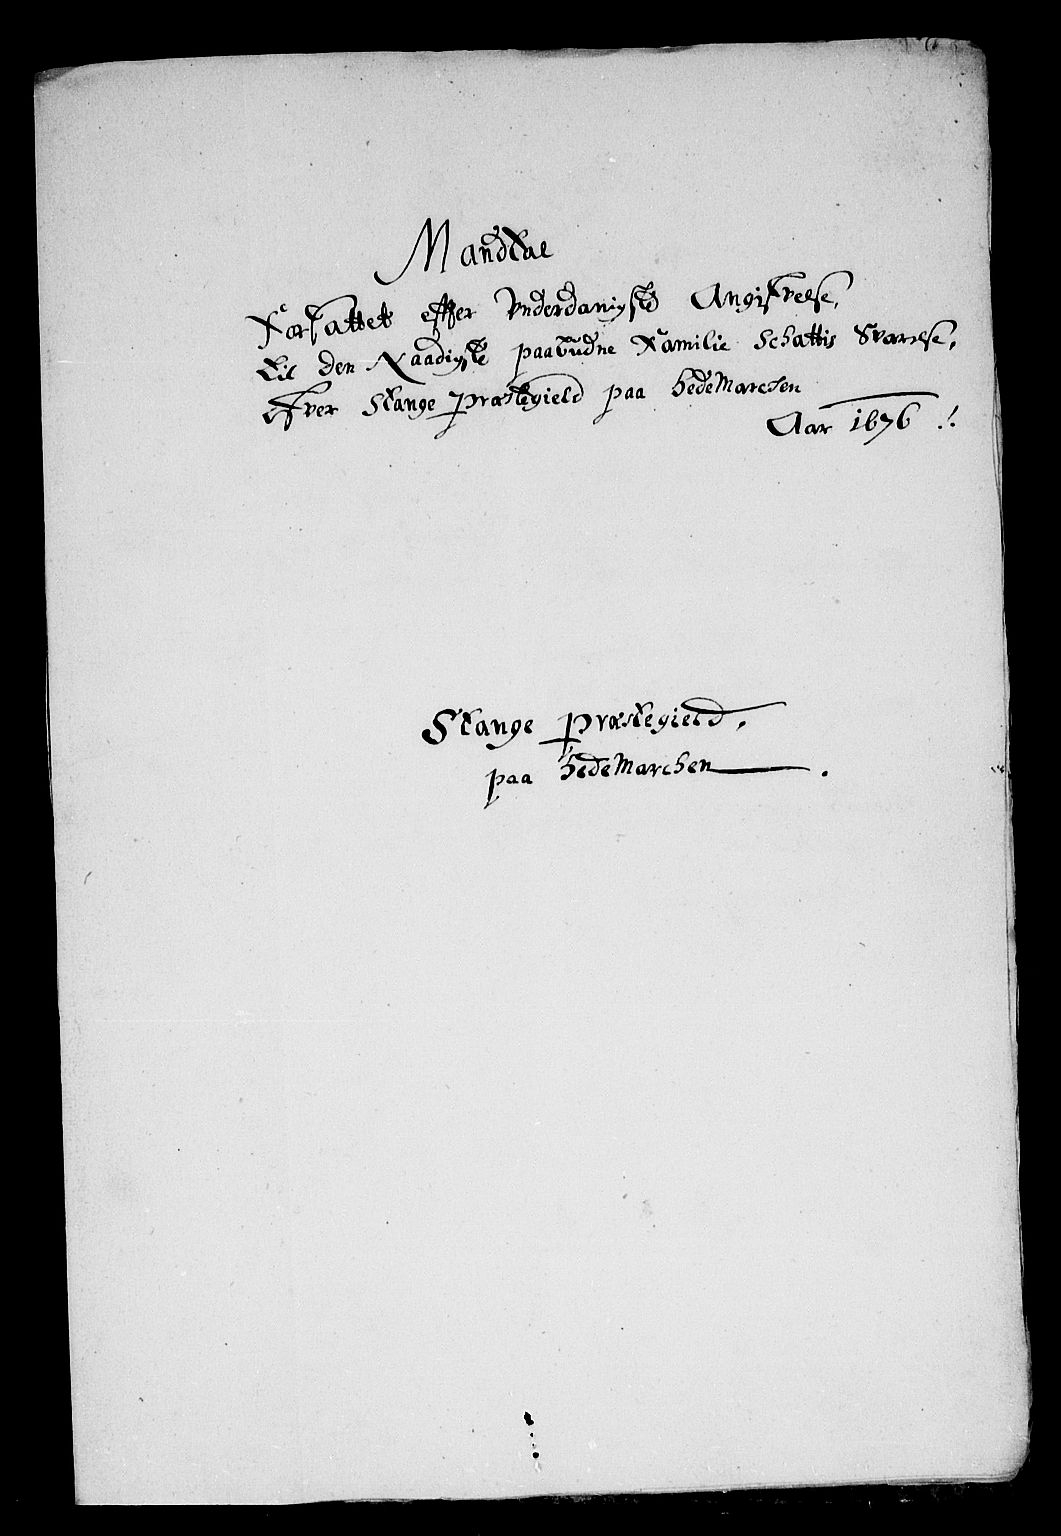 Mandtal
Forfattet effter Vnderdanigste Angifvelse,
til den Naadigste paabudne Familie Schattis Svarelse,
Ofver Stange Præstegield paa HedeMarchen
Aar 1676 ./.
Stange Præstegield,
paa HedeMarchen .